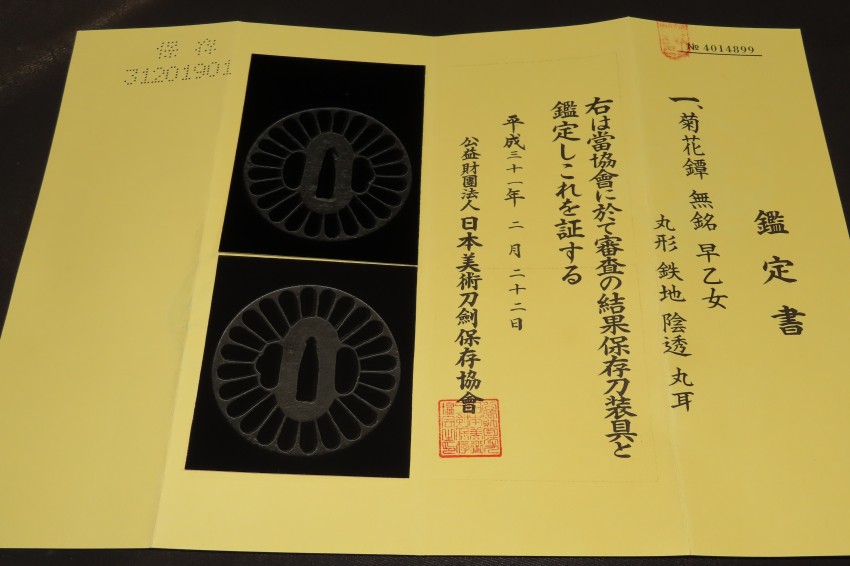 № 4014899
鑑定書
一、菊花鐔 無銘 早乙女
丸形 鉄地 陰透 丸耳
右は當協會に於て審査の結果保存刀装具と
鑑定しこれを証する
平成三十一年 二月 二十二日
公益財團法人 日本美術刀劍保存協會
保存
31201901